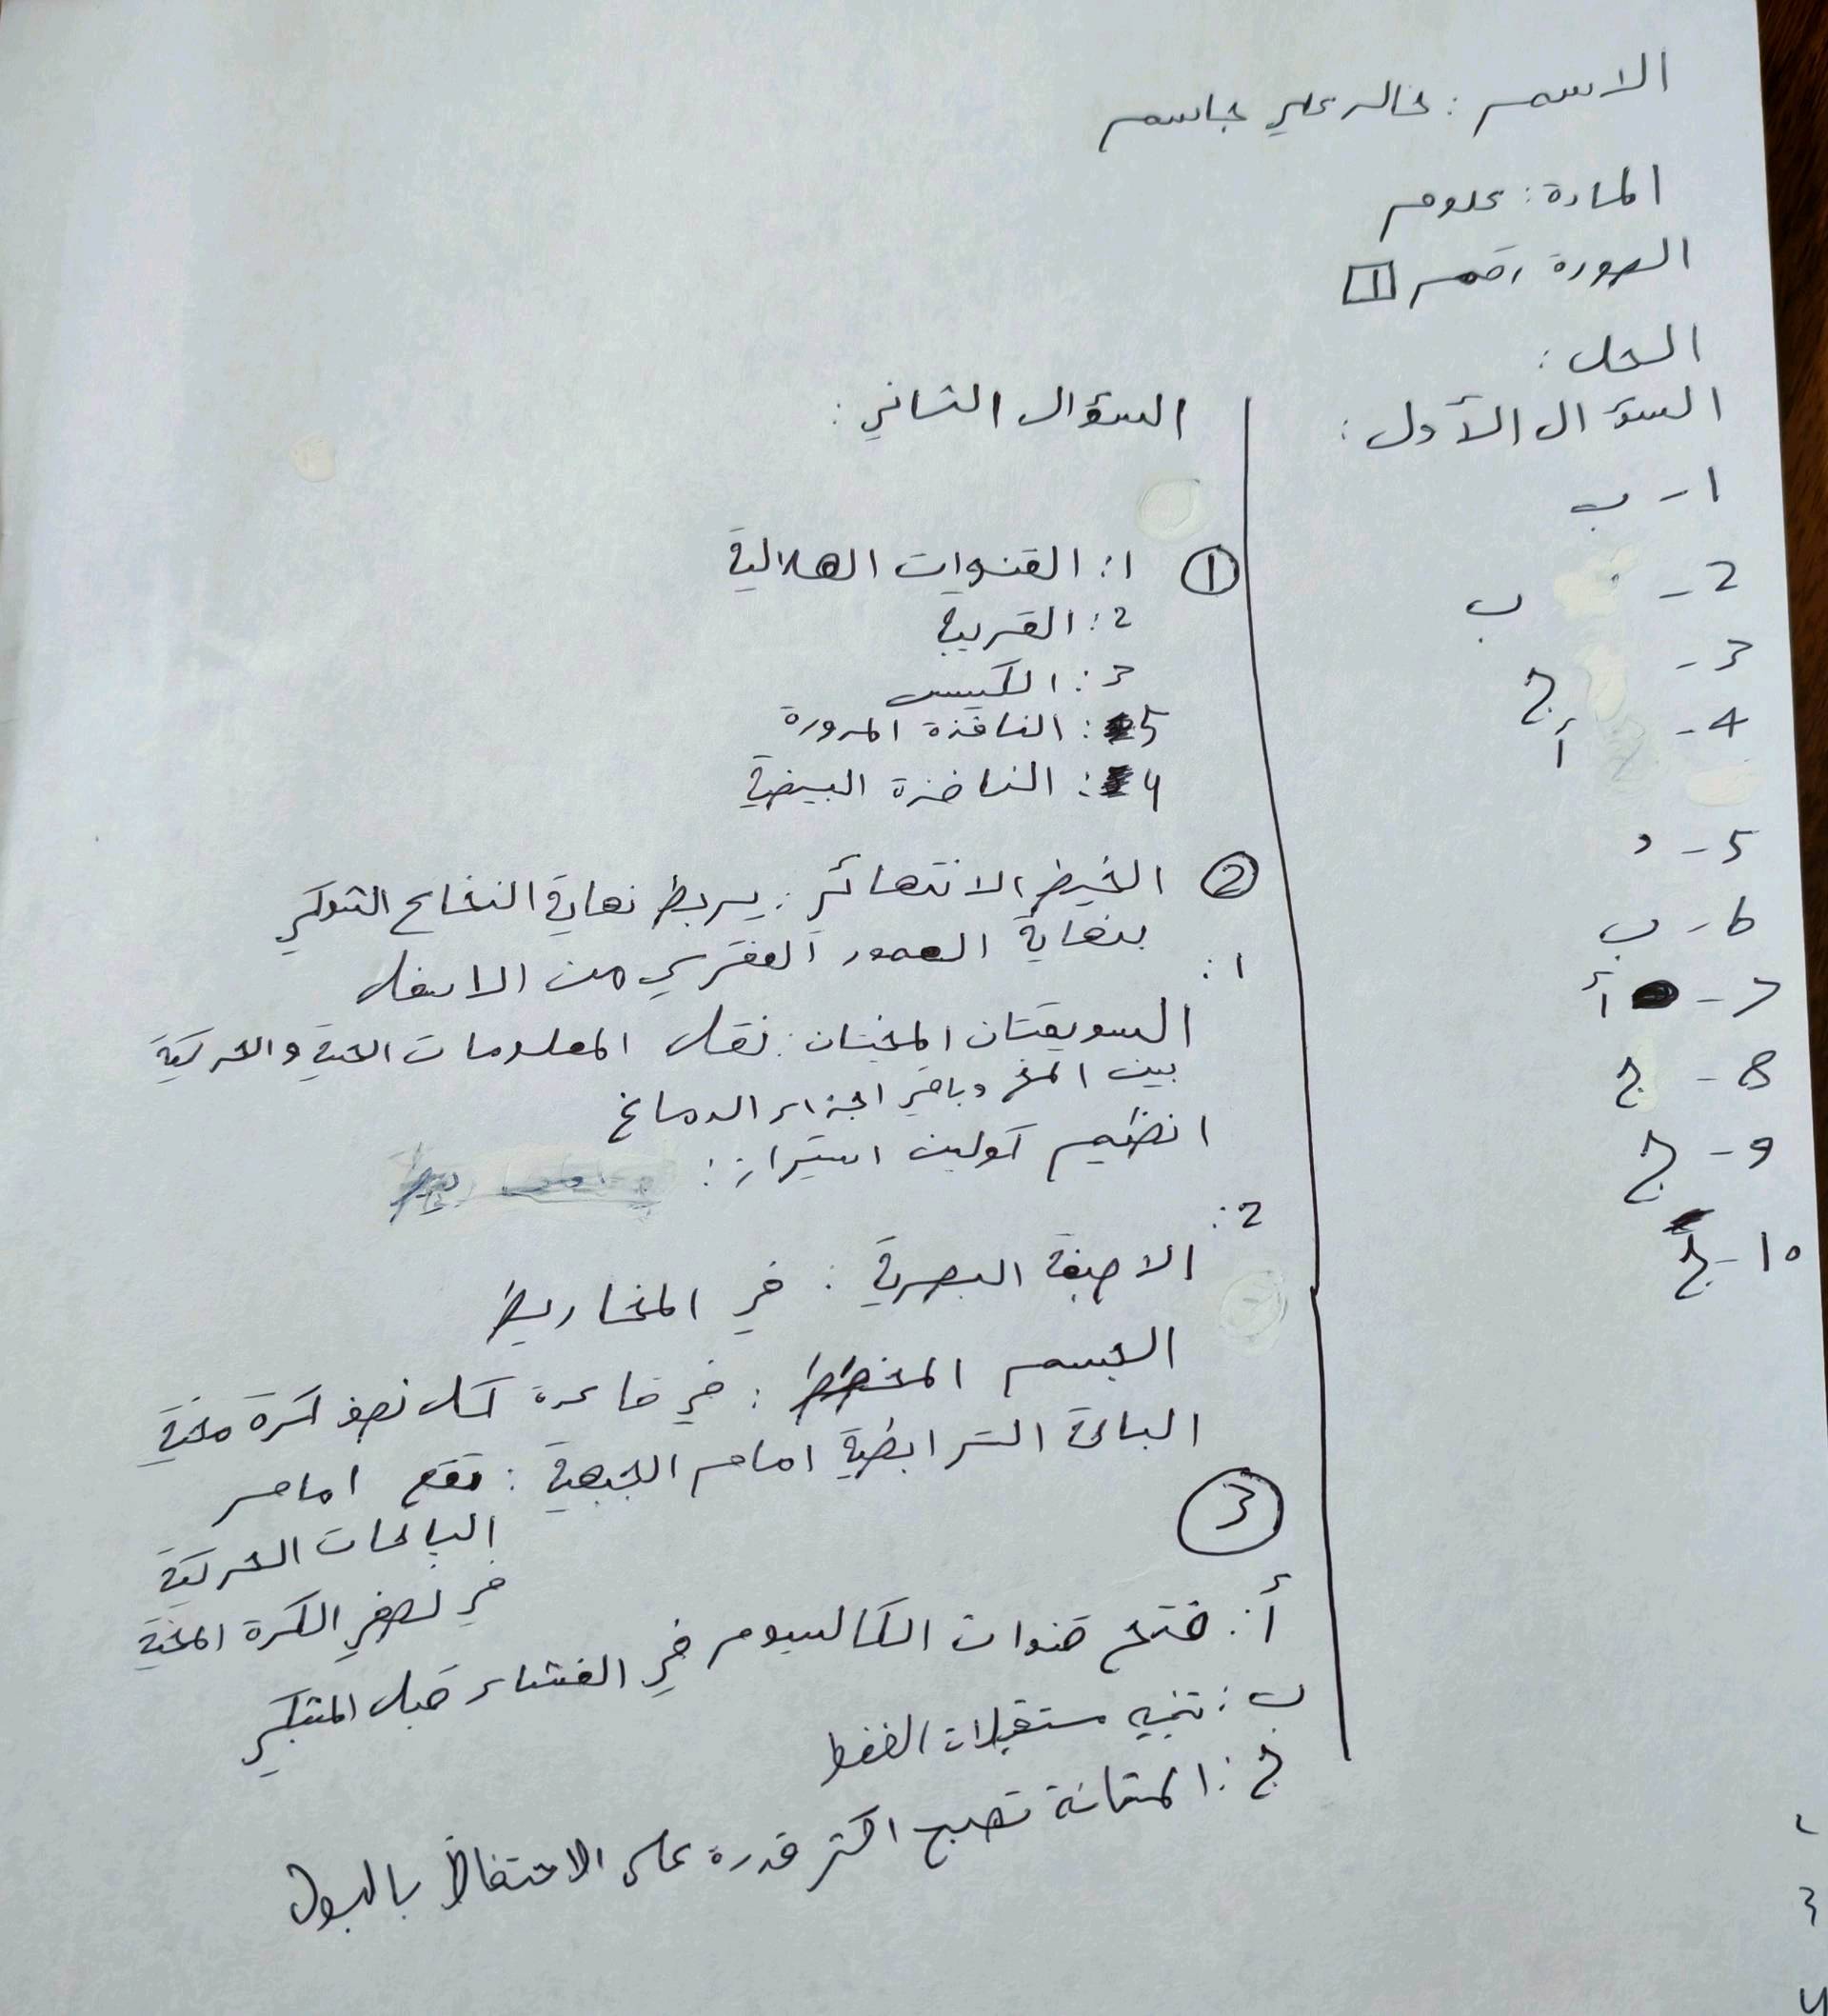 الاسم : خالد علي جاسم
المادة : علوم
الصورة رقم 1
الحل :
السؤال الأول :
1 - ب
2 - ب
3 - ج
4 - أ
5 - د
6 - ب
7 - أ
8 - ج
9 - ج
10 - ج
السؤال الثاني :
① 1 : القنوات الهلالية
2 : القريبة
3 : الكييس
5 : النافذة المدورة
4 : النافذة البيضية
② الخيط الانتهائي : يربط نهاية النخاع الشوكي
بنهاية العمود الفقري من الاسفل
1 :
السويقتان المخيتان : نقل المعلومات الحسية والحركية
بين المخ وباقي اجزاء الدماغ
انظيم كولين استيراز :
2 :
الاصبغة البصرية : في المخاريط
الجسم المخطط : في قاعدة كل نصف كرة مخية
الباحة الترابطية امام الجبهية : تقع امام
الباحات الحركية
في نصفي الكرة المخية
③
أ : فتح قنوات الكالسيوم في الغشاء قبل المشبكي
ب : تنبيه مستقبلات الضغط
ج : المثانة تصبح اكثر قدرة على الاحتفاظ بالبول
2
3
4